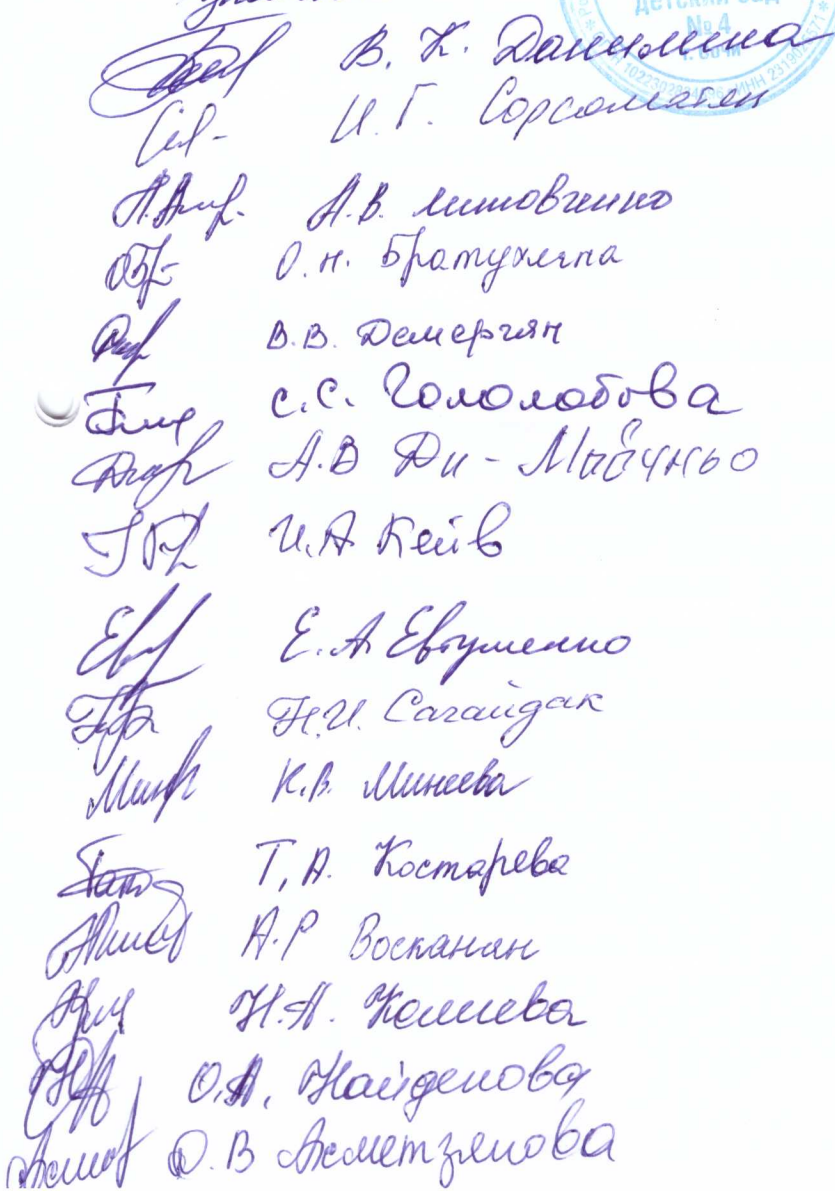 детский сад
№ 4
г. Сочи
В. К. Данилина
И. Г.
А. В. Литовченко
О. Н. Братухина
В. В. Демерчян
С. С. Гололобова
А. В Ди - Маучньо
И. А Кейв
Е. А Евтушенко
Н. И. Сагайдак
К. В. Минеева
Т, А. Костарева
А. Р Восканян
Н. А.
О. А, Найденова
О. В Ахметзянова